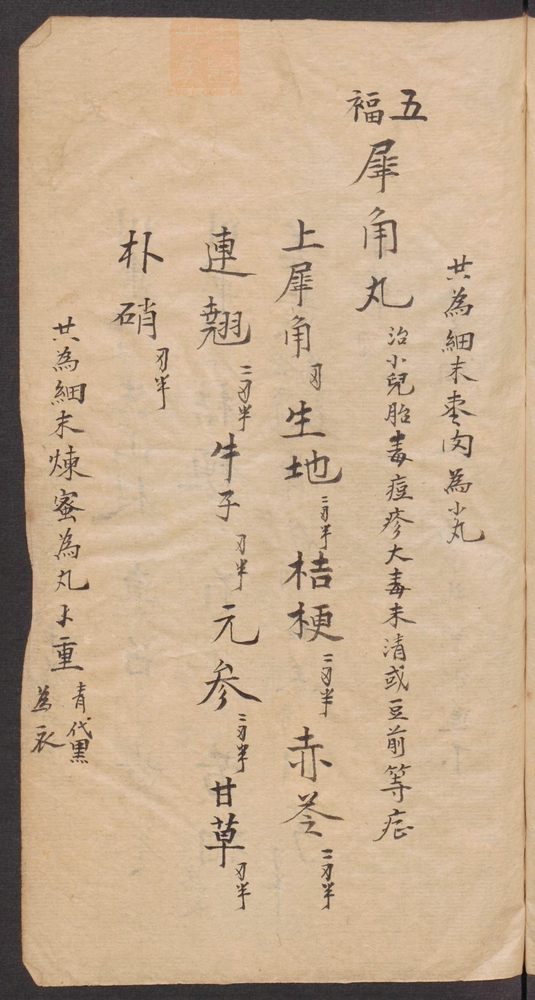 共為細末枣肉為小丸
五福犀角丸 治小兒胎毒痘疹大毒未清或豆前等症
上犀角刄 生地二刄半 桔梗二刄半 赤苓二刄半
連翹二刄半 牛子刄半 元参二刄半 甘草刄半
朴硝刄半
共為細末煉蜜為丸 重 青代黑為衣